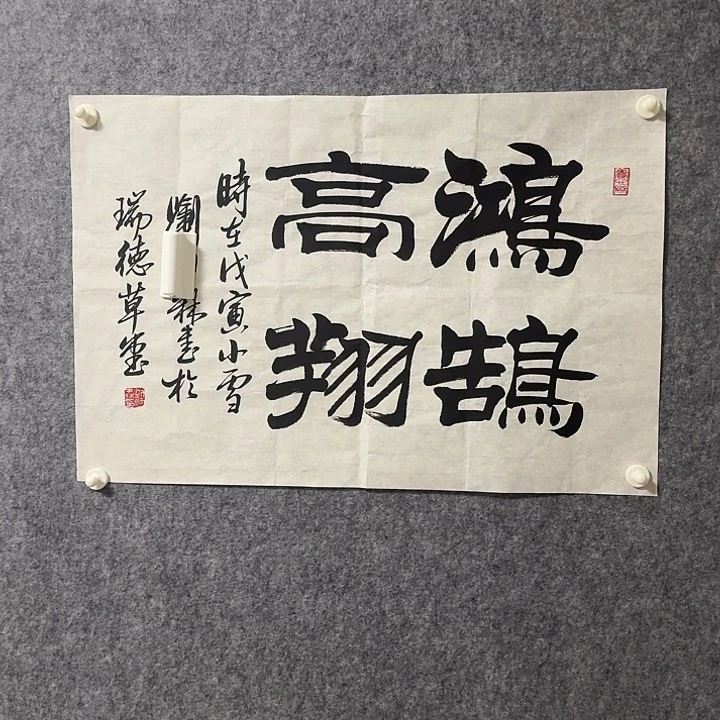 鴻鵠
高翔
時在戊寅小雪
書於
瑞德草堂